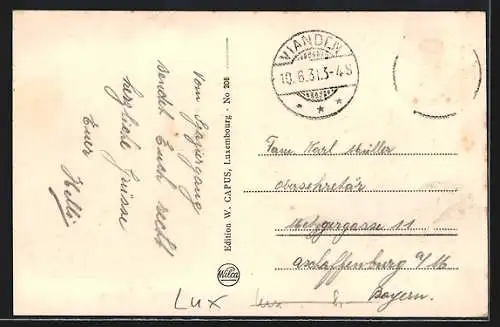 Vom Spaziergang
sendet Euch recht
herzliche Grüsse
Euer Helli
Edition W. CAPUS, Luxembourg - No 206
Wilca
VIANDEN
10.6.31.3-4S
* * *
Fam Karl Müller
Obersekretär
Metzgergasse 11
Aschaffenburg a/M
Bayern.
LUX
lux